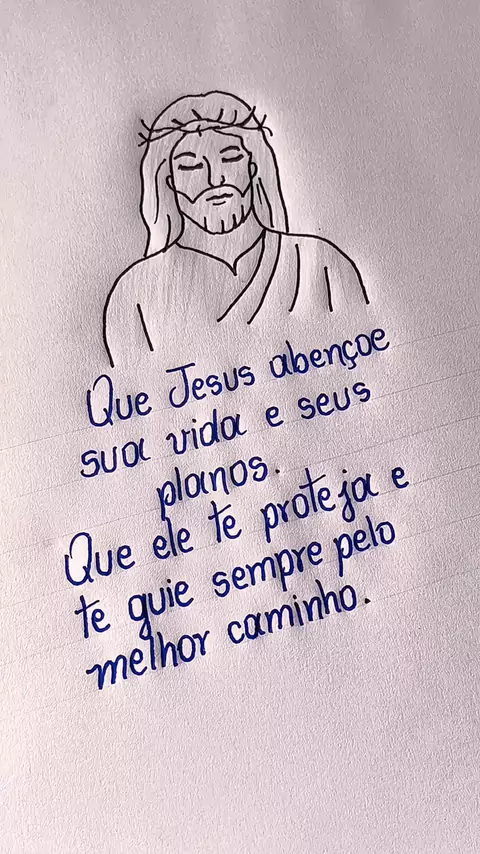 Que Jesus abençoe
sua vida e seus
planos.
Que ele te proteja e
te guie sempre pelo
melhor caminho.